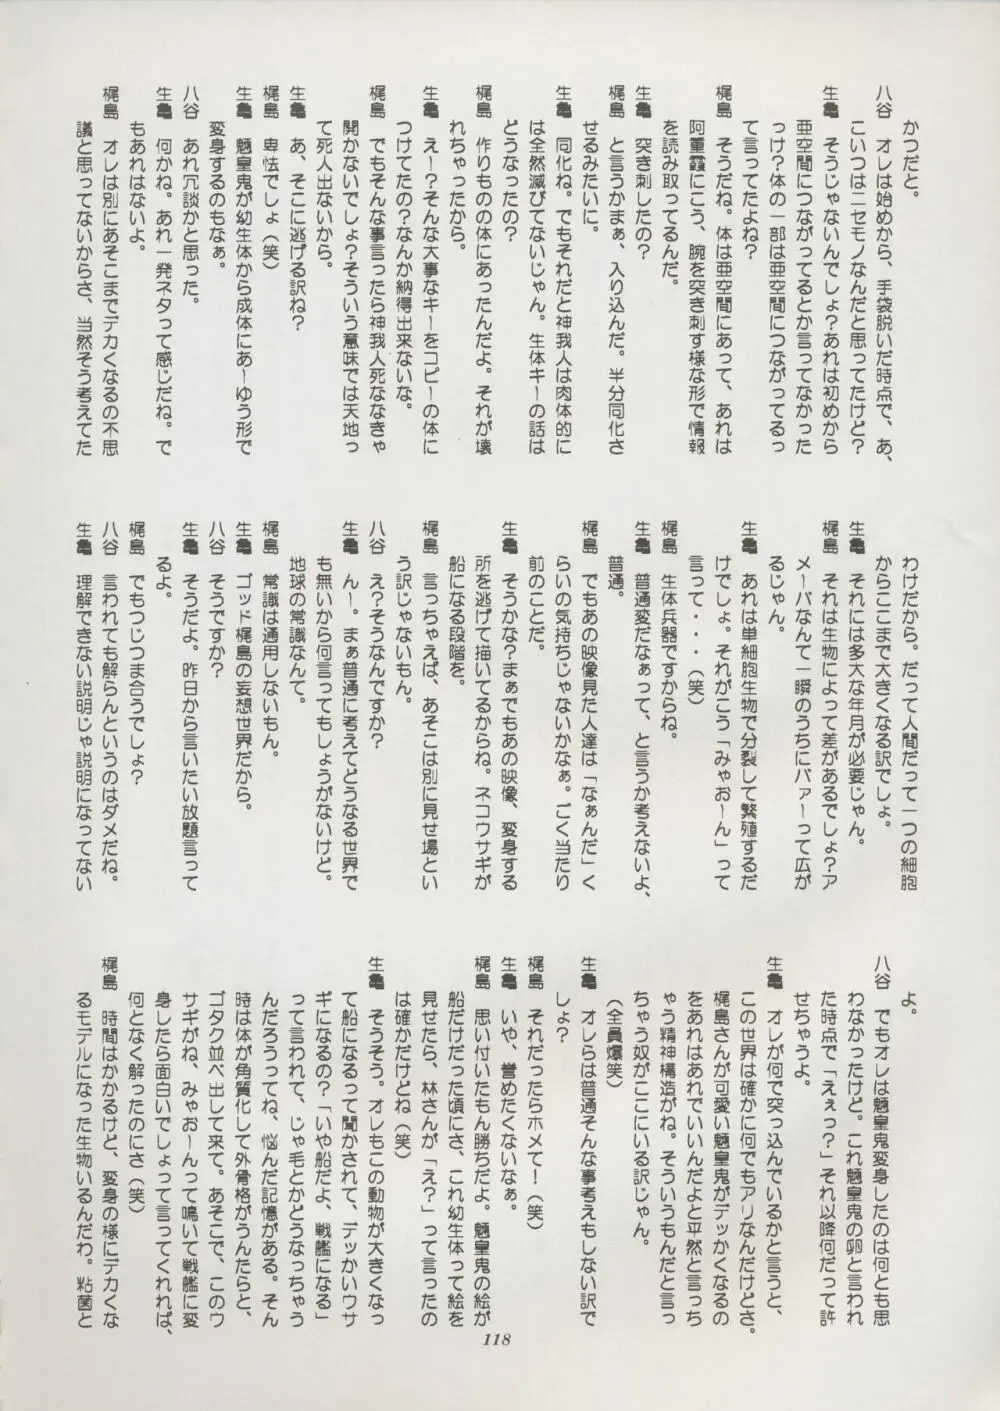 かつだと。
八谷　オレは始めから、手袋脱いだ時点で、あ、
こいつはニセモノなんだと思ってたけど？
生亀　そうじゃないんでしょ？あれは初めから
亜空間につながってるとか言ってなかった
っけ？体の一部は亜空間につながってるっ
て言ってたよね？
梶島　そうだね。体は亜空間にあって、あれは
阿重霞にこう、腕を突き刺す様な形で情報
を読み取ってるんだ。
生亀　突き刺したの？
梶島　と言うかまぁ、入り込んだ。半分同化さ
せるみたいに。
生亀　同化ね。でもそれだと神我人は肉体的に
は全然滅びてないじゃん。生体キーの話は
どうなったの？
梶島　作りものの体にあったんだよ。それが壊
れちゃったから。
生亀　えー？そんな大事なキーをコピーの体に
つけてたの？なんか納得出来ないな。
梶島　でもそんな事言ったら神我人死ななきゃ
開かないでしょ？そういう意味では天地っ
て死人出ないから。
生亀　あ、そこに逃げる訳ね？
梶島　卑怯でしょ（笑）
生亀　魎皇鬼が幼生体から成体にあーゆう形で
変身するのもなぁ。
八谷　あれ冗談かと思った。
生亀　何かね。あれ一発ネタって感じだね。で
もあれはないよ。
梶島　オレは別にあそこまでデカくなるの不思
議と思ってないからさ、当然そう考えてた
わけだから。だって人間だって一つの細胞
からここまで大きくなる訳でしょ。
生亀　それには多大な年月が必要じゃん。
梶島　それは生物によって差があるでしょ？ア
メーバなんて一瞬のうちにバァーって広が
るじゃん。
生亀　あれは単細胞生物で分裂して繁殖するだ
けでしょ。それがこう「みゃおーん」って
言って・・・（笑）
梶島　生体兵器ですからね。
生亀　普通変だなぁって、と言うか考えないよ、
普通。
梶島　でもあの映像見た人達は「なぁんだ」く
らいの気持ちじゃないかなぁ。ごく当たり
前のことだ。
生亀　そうかな？まぁでもあの映像、変身する
所を逃げて描いてるからね。ネコウサギが
船になる段階を。
梶島　言っちゃえば、あそこは別に見せ場とい
う訳じゃないもん。
八谷　え？そうなんですか？
生亀　んー。まぁ普通に考えてどうなる世界で
も無いから何言ってもしょうがないけど。
地球の常識なんて。
梶島　常識は通用しないもん。
生亀　ゴッド梶島の妄想世界だから。
八谷　そうですか？
生亀　そうだよ。昨日から言いたい放題言って
るよ。
梶島　でもつじつま合うでしょ？
八谷　言われても解らんというのはダメだね。
生亀　理解できない説明じゃ説明になってない
よ。
八谷　でもオレは魎皇鬼変身したのは何とも思
わなかったけど。これ魎皇鬼の卵と言われ
た時点で「えぇっ？」それ以降何だって許
せちゃうよ。
生亀　オレが何で突っ込んでいるかと言うと、
この世界は確かに何でもアリなんだけどさ。
梶島さんが可愛い魎皇鬼がデッかくなるの
をあれはあれでいいんだよと平然と言っち
ゃう精神構造がね。そういうもんだと言っ
ちゃう奴がここにいる訳じゃん。
（全員爆笑）
生亀　オレらは普通そんな事考えもしない訳で
しょ？
梶島　それだったらホメて！（笑）
生亀　いや、誉めたくないなぁ。
梶島　思い付いたもん勝ちだよ。魎皇鬼の絵が
船だけだった頃にさ、これ幼生体って絵を
見せたら、林さんが「え？」って言ったの
は確かだけどね（笑）
生亀　そうそう。オレもこの動物が大きくなっ
て船になるって聞かされて、デッかいウサ
ギになるの？「いや船だよ、戦艦になる」
って言われて、じゃ毛とかどうなっちゃう
んだろうってね、悩んだ記憶がある。そん
時は体が角質化して外骨格がうんたらと、
ゴタク並べ出して来て。あそこで、このウ
サギがね、みゃおーんって鳴いて戦艦に変
身したら面白いでしょって言ってくれれば、
何となく解ったのにさ（笑）
梶島　時間はかかるけど、変身の様にデカくな
るモデルになった生物いるんだわ。粘菌と
118